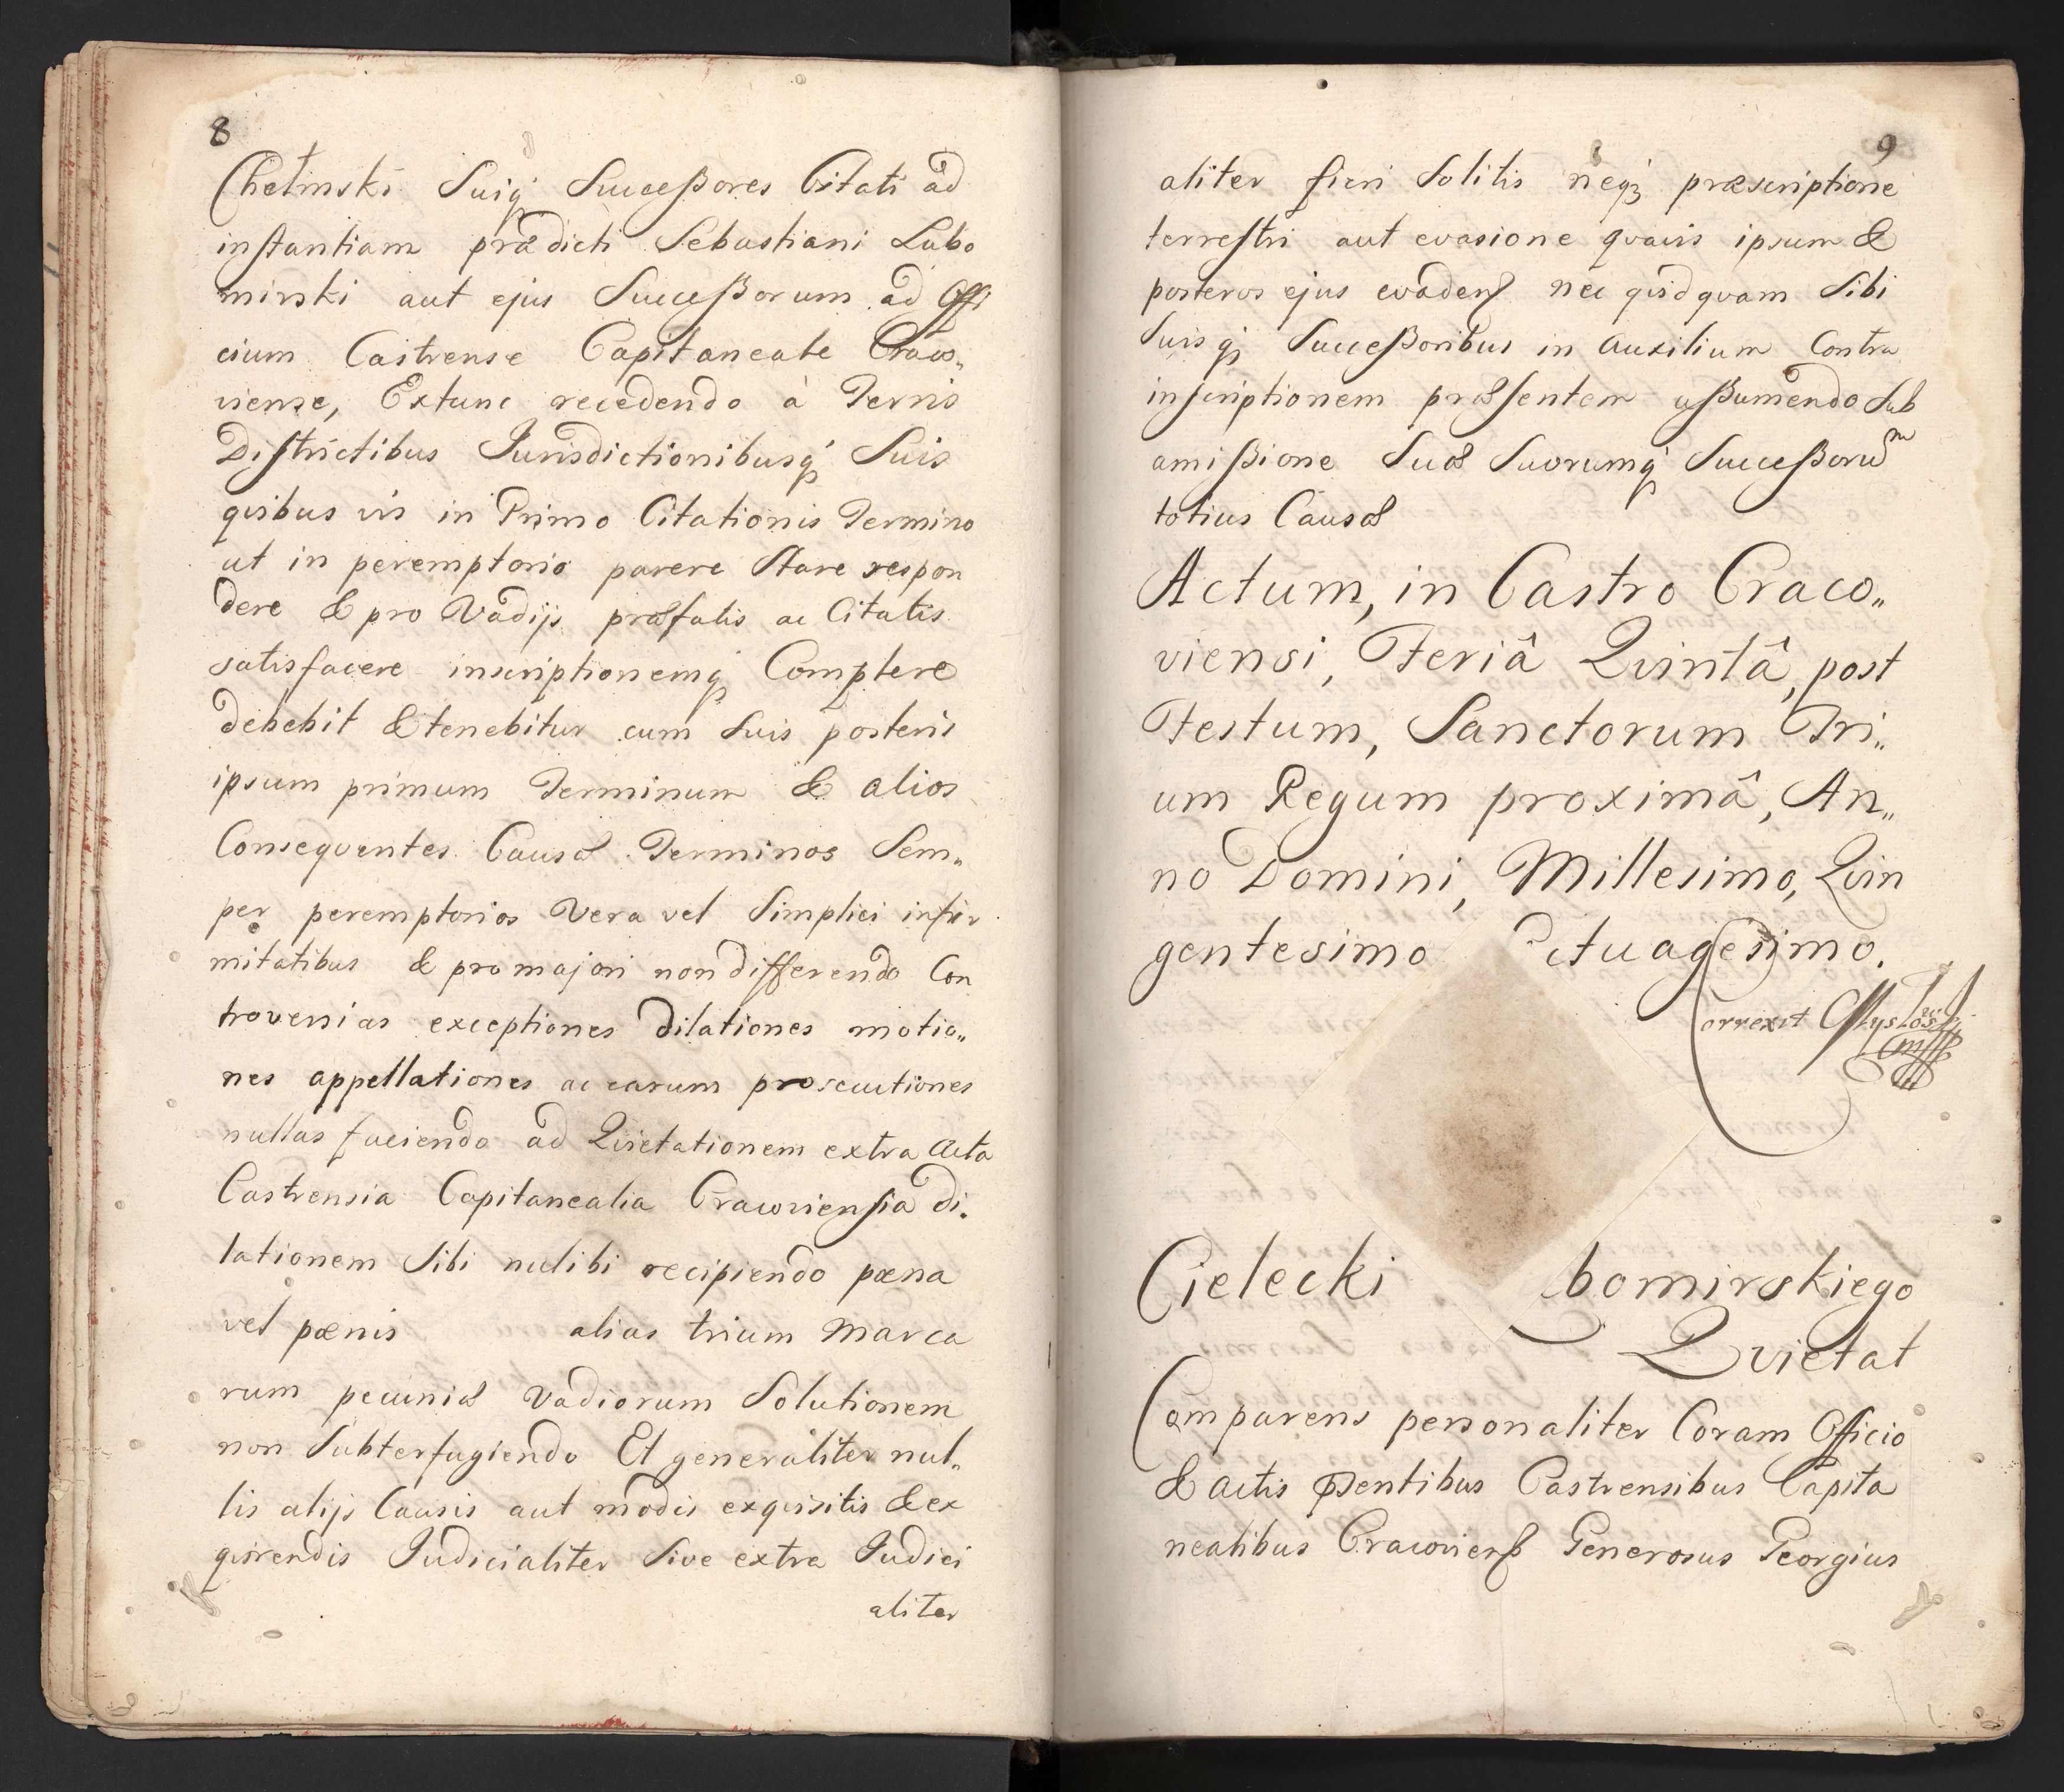 8
Chełmski Suiq Successores Citati ad
instantiam prædicti Sebastiani Lubo
mirski aut ejus Successorum ad Offi
cium Castrense Capitaneale Craco„
viense, Extunc recedendo à Terris
Districtibus Jurisdictionibusq Suis
quibus vis in Primo Citationis Termino
ut in peremptorio parere Stare respon
dere & pro Vadijs præfatis ac Citatis
satisfacere inscriptionemq Complere
debebit & tenebitur cum Suis posteris
ipsum primum Terminum & alios
Consequentes Causæ Terminos Sem„
per peremptorios Vera vel Simplici infir
mitatibus & pro majori non differendo Con
trovenias exceptiones dilationes motio„
nes appellationes ac earum prosecutiones
nullas faciendo ad Quietationem extra Acta
Castrensia Capitanealia Cracoviensia di„
lationem Sibi nullibi recipiendo pœna
vel pœnis alias trium Marca
rum pecuniæ Vadiorum Solutionem
non Subterfugiendo Et generaliter nul„
lis alijs Causis aut modis exquisitis & ex
quirendis Judicialiter Sive extra Judici
aliter
9
aliter fieri Solitis neqȝ præscriptione
terrestri aut evasione quavis ipsum &
posteros ejus evadens nec quidquam Sibi
Suisq Successoribus in Auxilium Contra
inscriptionem præsentem assumendo Sub
amissione Suæ Suorumq Successorum
totius Causæ
Actum, in Castro Craco„
viensi, Feriâ Quintâ, post
Festum, Sanctorum Tri„
um Regum proximâ, An„
no Domini, Millesimo, Quin
gentesimo ctuagesimo.
Correxit
Cielecki bomirskiego
Quietat
Comparens personaliter Coram Officio
& Actis pntibus Castrensibus Capita
nealibus Cracoviens Generosus Georgius